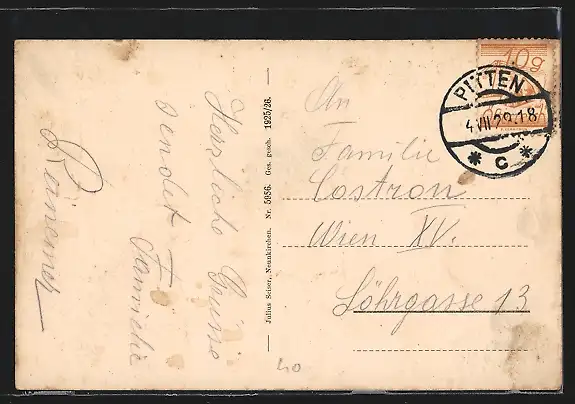 Herzliche Grüsse
sendet Familie
— Julius Seiser, Neunkirchen. Nr. 5956. Ges. gesch. 1925/26. —
10g
PITTEN
4.VII.29.18
* C *
An
Familie
Costron
Wien XV.
Löhrgasse 13
40